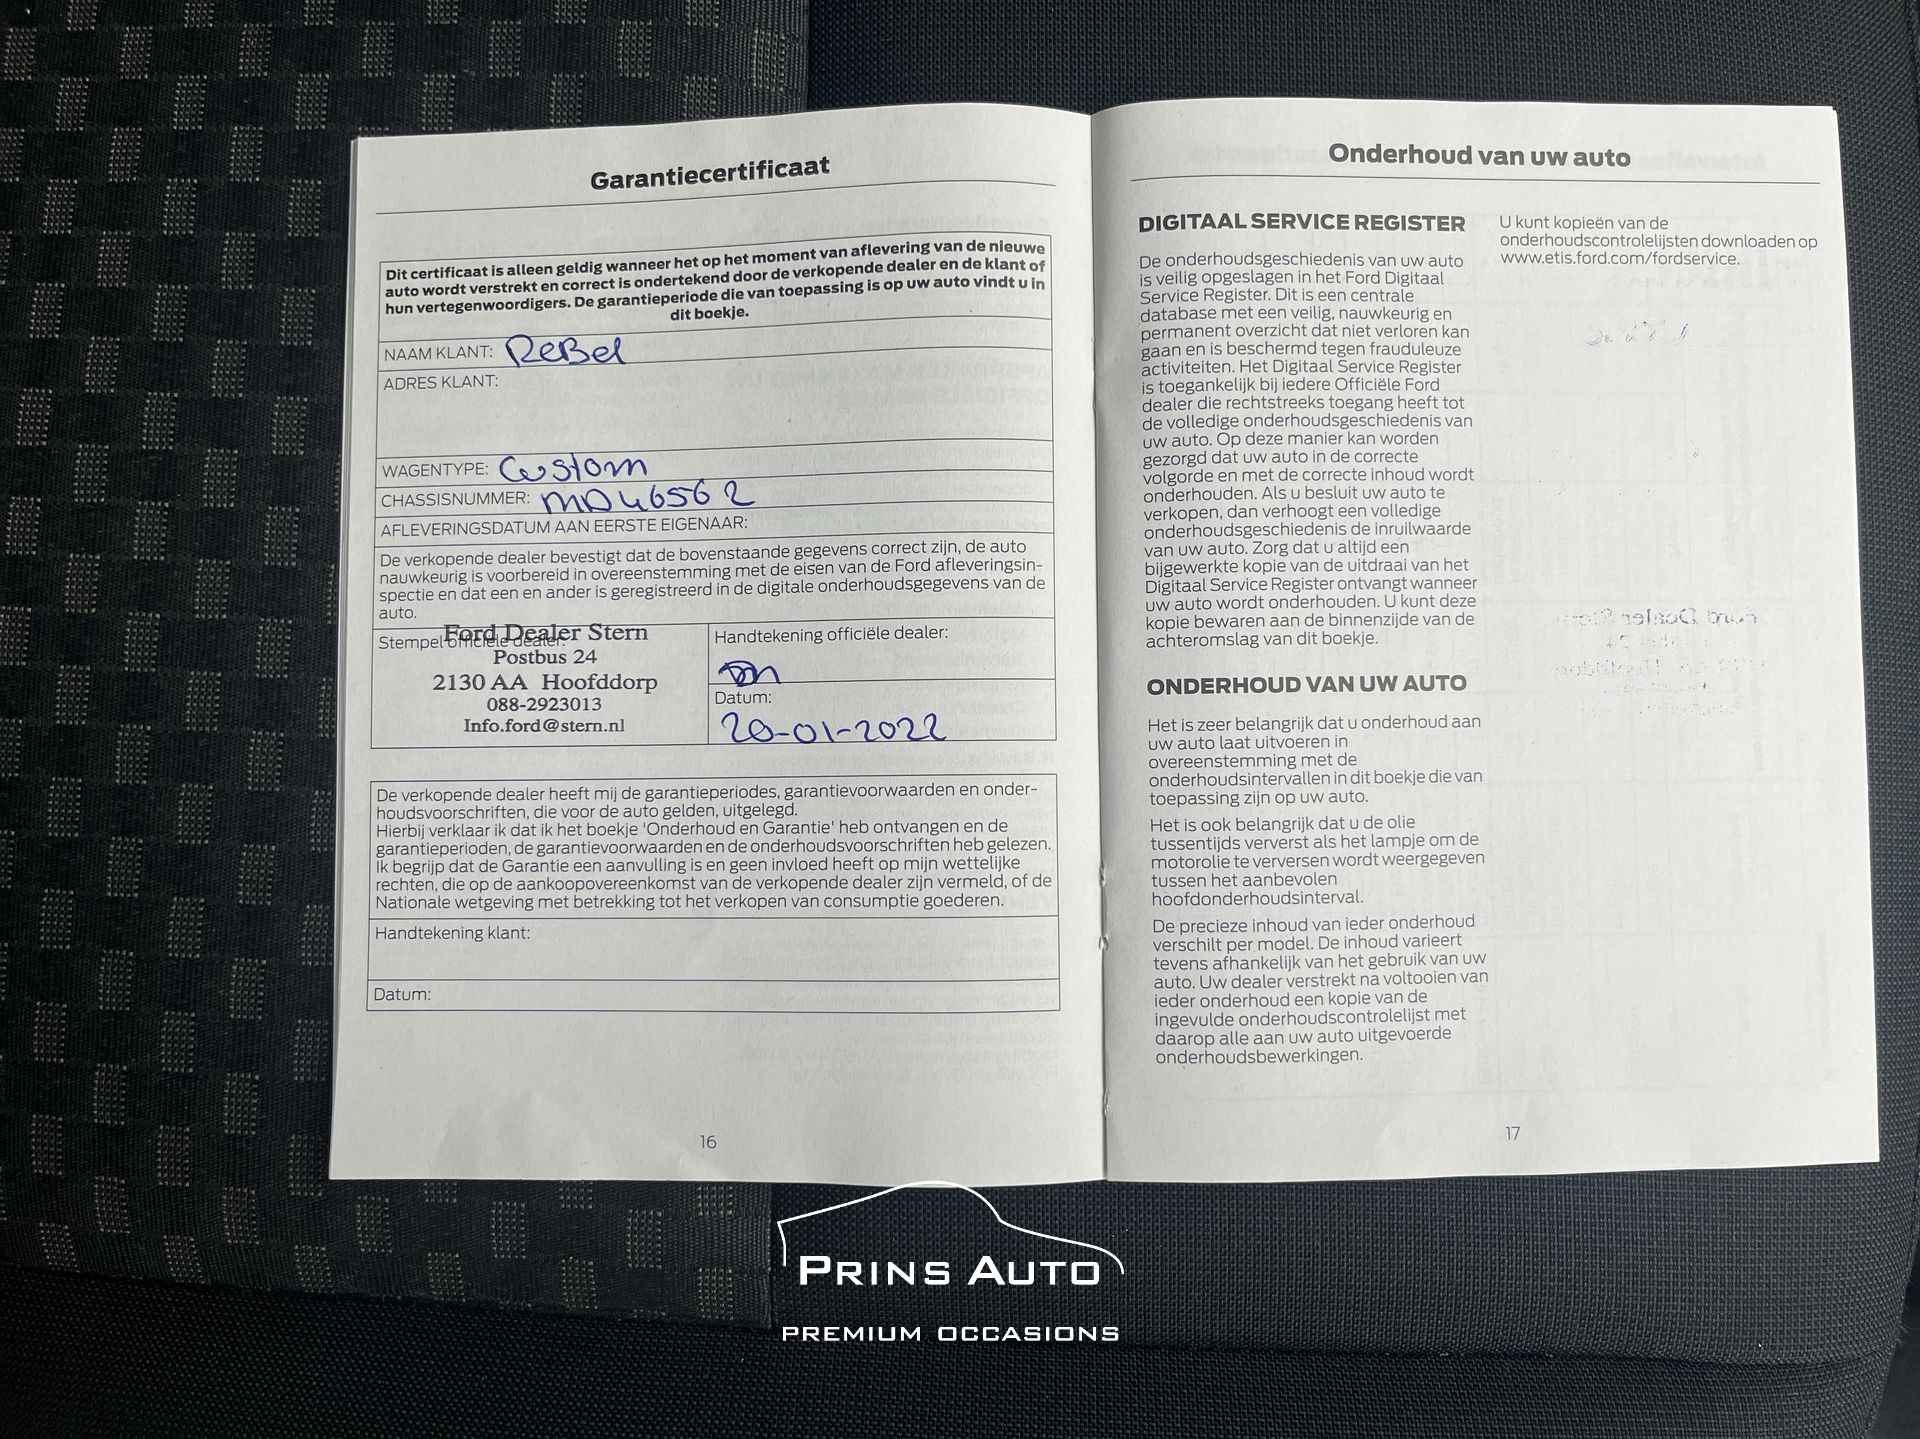 Garantiecertificaat
Dit certificaat is alleen geldig wanneer het op het moment van aflevering van de nieuwe
auto wordt verstrekt en correct is ondertekend door de verkopende dealer en de klant of
hun vertegenwoordigers. De garantieperiode die van toepassing is op uw auto vindt u in
dit boekje.
NAAM KLANT: ReBel
ADRES KLANT:
WAGENTYPE: Custom
CHASSISNUMMER: MD46562
AFLEVERINGSDATUM AAN EERSTE EIGENAAR:
De verkopende dealer bevestigt dat de bovenstaande gegevens correct zijn, de auto
nauwkeurig is voorbereid in overeenstemming met de eisen van de Ford afleveringsin-
spectie en dat een en ander is geregistreerd in de digitale onderhoudsgegevens van de
auto.
Stempel officiële dealer:
Ford Dealer Stern
Postbus 24
2130 AA Hoofddorp
088-2923013
Info.ford@stern.nl
Handtekening officiële dealer:
Datum:
20-01-2022
De verkopende dealer heeft mij de garantieperiodes, garantievoorwaarden en onder-
houdsvoorschriften, die voor de auto gelden, uitgelegd.
Hierbij verklaar ik dat ik het boekje 'Onderhoud en Garantie' heb ontvangen en de
garantieperioden, de garantievoorwaarden en de onderhoudsvoorschriften heb gelezen.
Ik begrijp dat de Garantie een aanvulling is en geen invloed heeft op mijn wettelijke
rechten, die op de aankoopovereenkomst van de verkopende dealer zijn vermeld, of de
Nationale wetgeving met betrekking tot het verkopen van consumptie goederen.
Handtekening klant:
Datum:
16
Onderhoud van uw auto
DIGITAAL SERVICE REGISTER
De onderhoudsgeschiedenis van uw auto
is veilig opgeslagen in het Ford Digitaal
Service Register. Dit is een centrale
database met een veilig, nauwkeurig en
permanent overzicht dat niet verloren kan
gaan en is beschermd tegen frauduleuze
activiteiten. Het Digitaal Service Register
is toegankelijk bij iedere Officiële Ford
dealer die rechtstreeks toegang heeft tot
de volledige onderhoudsgeschiedenis van
uw auto. Op deze manier kan worden
gezorgd dat uw auto in de correcte
volgorde en met de correcte inhoud wordt
onderhouden. Als u besluit uw auto te
verkopen, dan verhoogt een volledige
onderhoudsgeschiedenis de inruilwaarde
van uw auto. Zorg dat u altijd een
bijgewerkte kopie van de uitdraai van het
Digitaal Service Register ontvangt wanneer
uw auto wordt onderhouden. U kunt deze
kopie bewaren aan de binnenzijde van de
achteromslag van dit boekje.
ONDERHOUD VAN UW AUTO
Het is zeer belangrijk dat u onderhoud aan
uw auto laat uitvoeren in
overeenstemming met de
onderhoudsintervallen in dit boekje die van
toepassing zijn op uw auto.
Het is ook belangrijk dat u de olie
tussentijds ververst als het lampje om de
motorolie te verversen wordt weergegeven
tussen het aanbevolen
hoofdonderhoudsinterval.
De precieze inhoud van ieder onderhoud
verschilt per model. De inhoud varieert
tevens afhankelijk van het gebruik van uw
auto. Uw dealer verstrekt na voltooien van
ieder onderhoud een kopie van de
ingevulde onderhoudscontrolelijst met
daarop alle aan uw auto uitgevoerde
onderhoudsbewerkingen.
U kunt kopieën van de
onderhoudscontrolelijsten downloaden op
www.etis.ford.com/fordservice.
17
PRINS AUTO
PREMIUM OCCASIONS